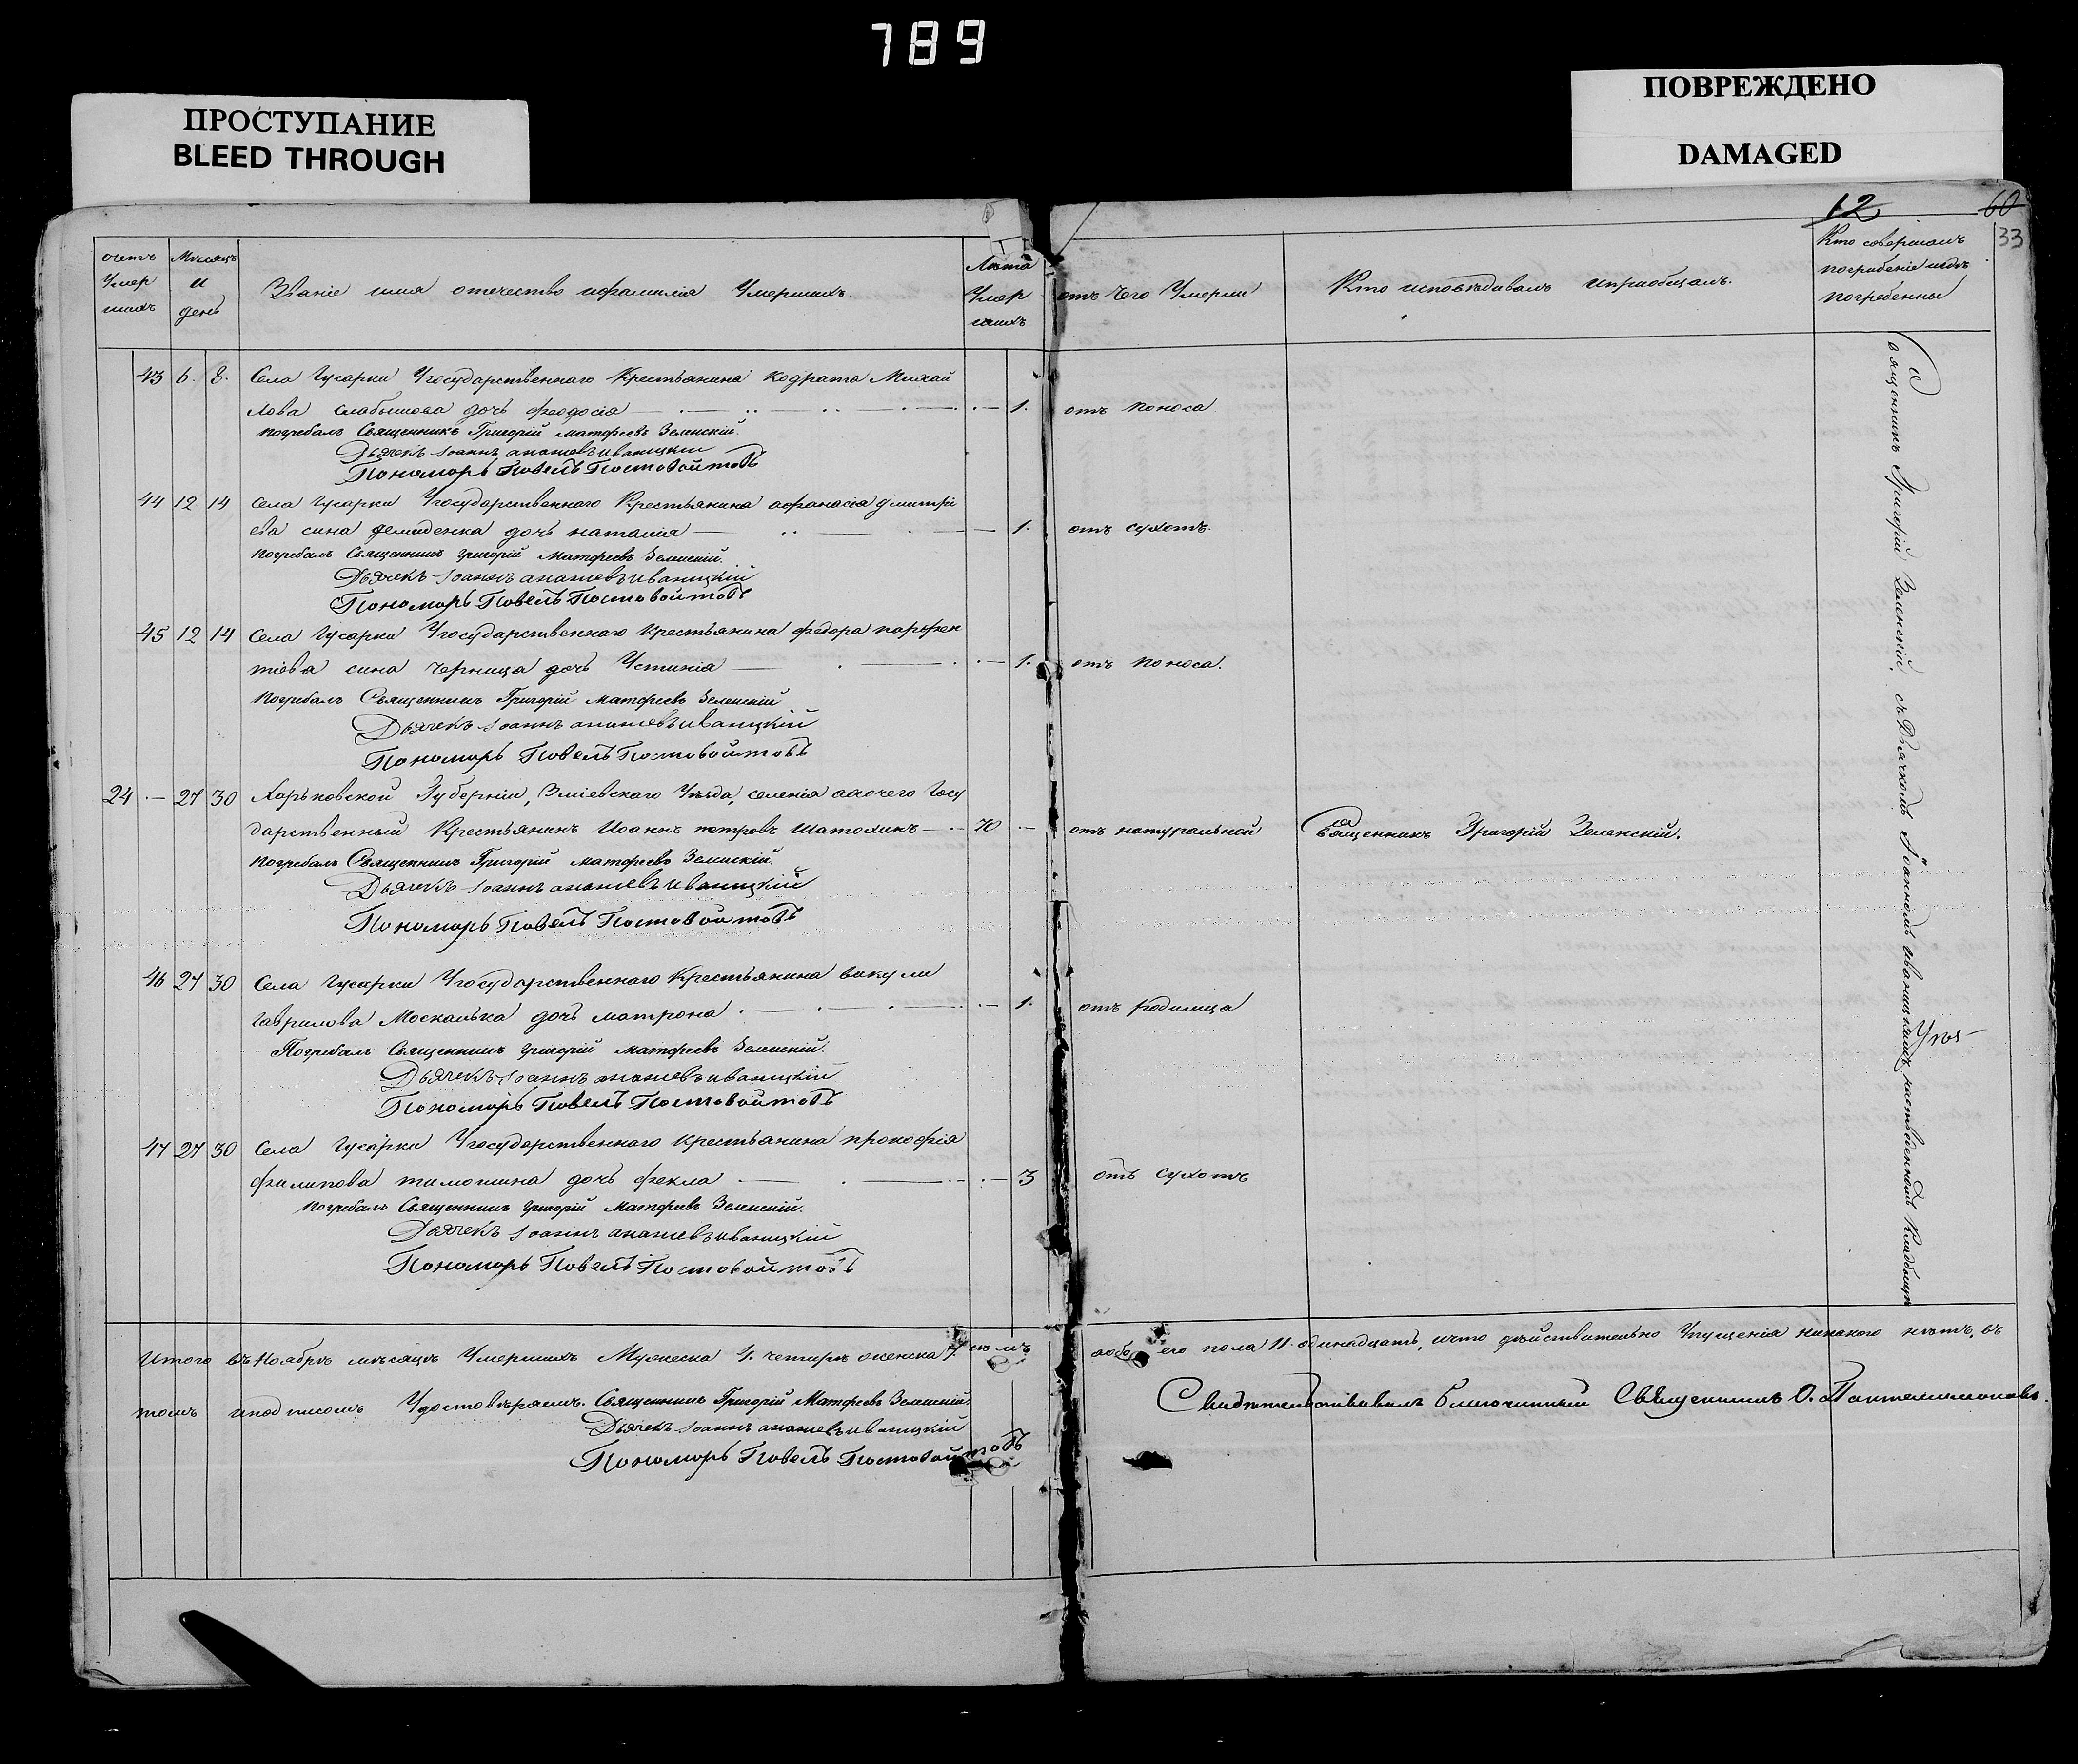 789
ПРОСТУПАНИЕ
BLEED THROUGH
ПОВРЕЖДЕНО
DAMAGED
12 60
33
счетъ Умер шихъ
Мѣсяцъ и день
Званіе имя отечество ифамилія Умершихъ.
Лѣта Умер шихъ
отъ Чего Умерли
Кто исповѣдивалъ ипріобщалъ.
Кто совершалъ погребеніе игдѣ погребенны
43 6. 8. Села Гусарки Государственнаго Крестьянина Кодрата Михай
лова Слабышова дочь феодосія 1. отъ поноса
погребалъ Священникъ Григорій матфеевъ Зеленскій.
Дьячекъ Іоаннъ ананіевъ иваницкій
Пономарь Павелъ Постовойтовъ
44 12 14 Села Гусарки Государственнаго Крестьянина афанасія дмитрі
ева сина демиденка дочь наталія 1. отъ сухотъ.
погребалъ Священникъ Григорій Матфеевъ Зеленскій.
Дьячекъ Іоаннъ ананіевъ иваницкій
Пономарь Павелъ Постовойтовъ
45 12 14 Села Гусарки Государственнаго Крестьянина федора парфен
тіева сина Черница дочь Устинія 1. отъ поноса.
погребалъ Священникъ Григорій Матфеевъ Зеленскій
Дьячекъ Іоаннъ ананіевъ иваницкій
Пономарь Павелъ Постовойтовъ
24 27 30 Харьковской Губерніи, Зміевскаго Уѣзда, селенія Госу
дарственный Крестьянинъ Иоаннъ петровъ Шатохинъ 70 отъ натуральной Священникъ Григорій Зеленскій.
погребалъ Священникъ Григорій матфеевъ Зеленскій.
Дьячекъ Іоаннъ ананіевъ иваницкій
Пономарь Павелъ Постовойтовъ
46 27 30 Села Гусарки Государственнаго Крестьянина вакули
гаврилова Москалька дочь матрона 1. отъ родимца
Погребалъ Священникъ Григорій матфеевъ Зеленскій.
Дьячекъ Іоаннъ ананіевъ иваницкій
Пономарь Павелъ Постовойтовъ
47 27 30 Села Гусарки Государственнаго Крестьянина прокофія
филипова тимошина дочь фекла 3 отъ сухотъ
погребалъ Священникъ Григорій Матфеевъ Зеленскій.
Дьячекъ Іоаннъ ананіевъ иваницкій
Пономарь Павелъ Постовойтовъ
Священникъ Григорій Зеленскій съ Дьячкомъ Іоанномъ иваницкимъ Кладбищѣ
Итого въ Ноябрѣ мѣсяцѣ Умершихъ Мужеска 4. четыре женска 7. семь обоего пола 11. одинадцать, ичто дѣйствительно Упущенія никакого нѣтъ, въ
томъ иподписомъ Удостовѣряемъ. Священникъ Григорій Матфеевъ Зеленскій.
Дьячекъ Іоаннъ ананіевъ иваницкій
Пономарь Павелъ Постовойтовъ
Свидѣтельствовалъ Благочинный Священникъ О. Пантелимоновъ.